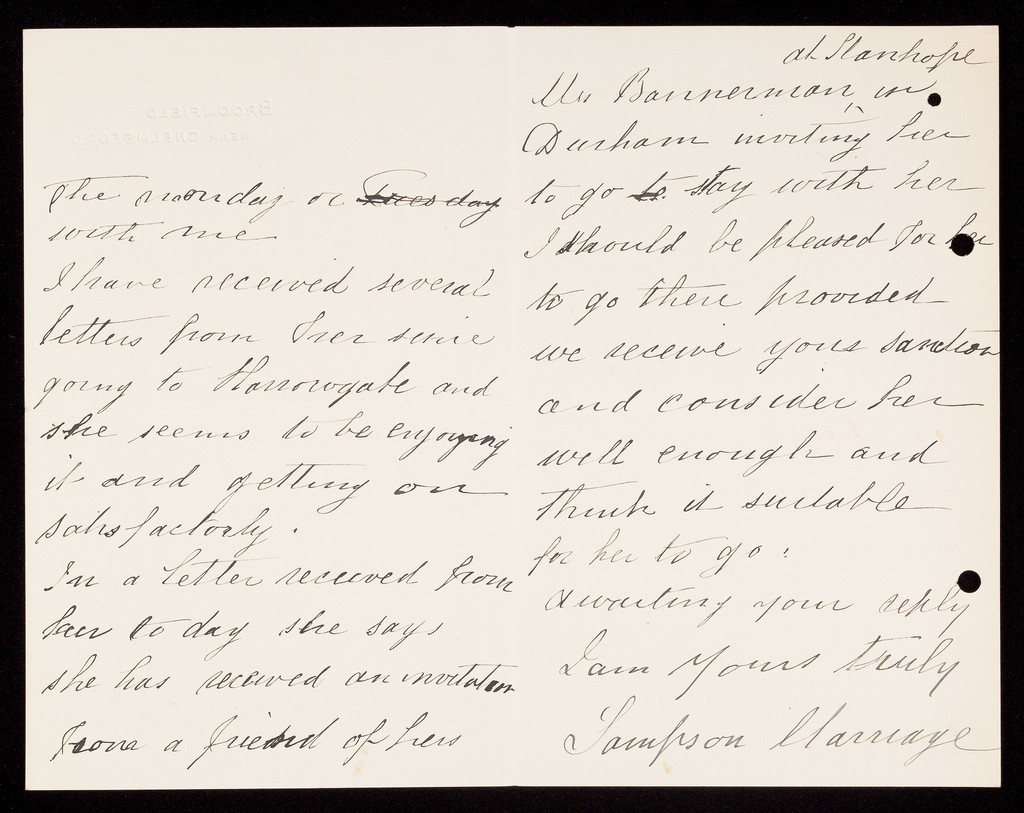 The monday or Tuesday
with me
I have received several
letters from her since
going to Harrowgate and
she seems to be enjoying
it and getting on
satisfactorly.
In a letter received from
her to day she says
she has received an invitation
from a friend of hers
at Stanhope
Mrs Bannerman ^ in
Durham inviting her
to go to stay with her
I should be pleased for her
to go there provided
we receive your sanction
and consider her
well enough and
think it suitable
for her to go.
Awaiting your reply
I am yours truly
Sampson Marriage
BROOMFIELD
NEAR CHELMSFORD